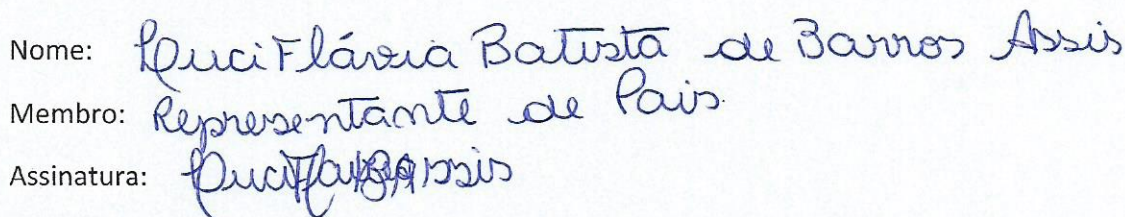 Nome: Luci Flávia Batista de Barros Assis
Membro: Representante de Pais
Assinatura: